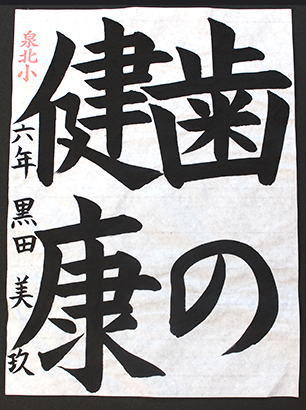 歯の
健康
泉北小
六年 黒田 美玖